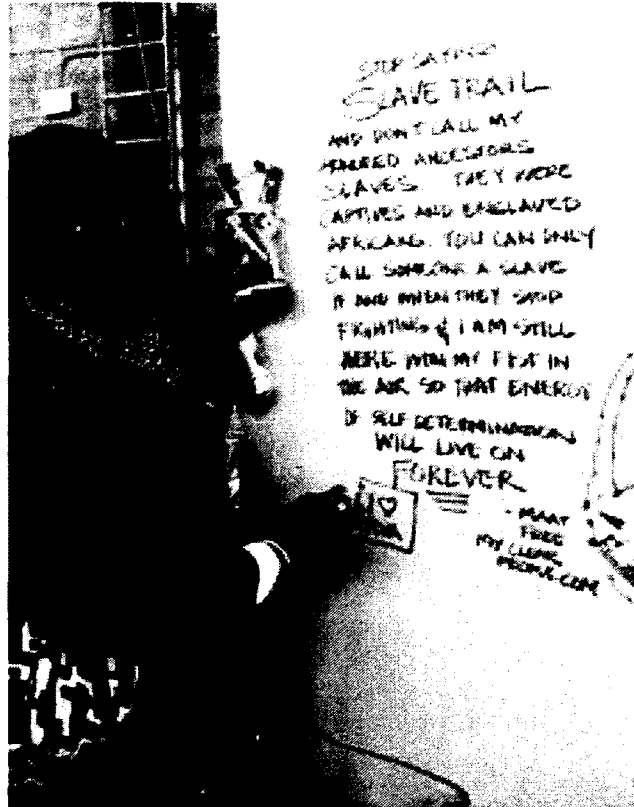 STOP SAYING
SLAVE TRAIL
AND DON'T CALL MY
HONORED ANCESTORS
SLAVES. THEY WERE
CAPTIVES AND ENSLAVED
AFRICANS. YOU CAN ONLY
CALL SOMEONE A SLAVE
IF AND WHEN THEY STOP
FIGHTING & I AM STILL
HERE WITH MY FIST IN
THE AIR SO THAT ENERGY
OF SELF DETERMINATION
WILL LIVE ON
FOREVER
I ♡
- MAAT
FREE